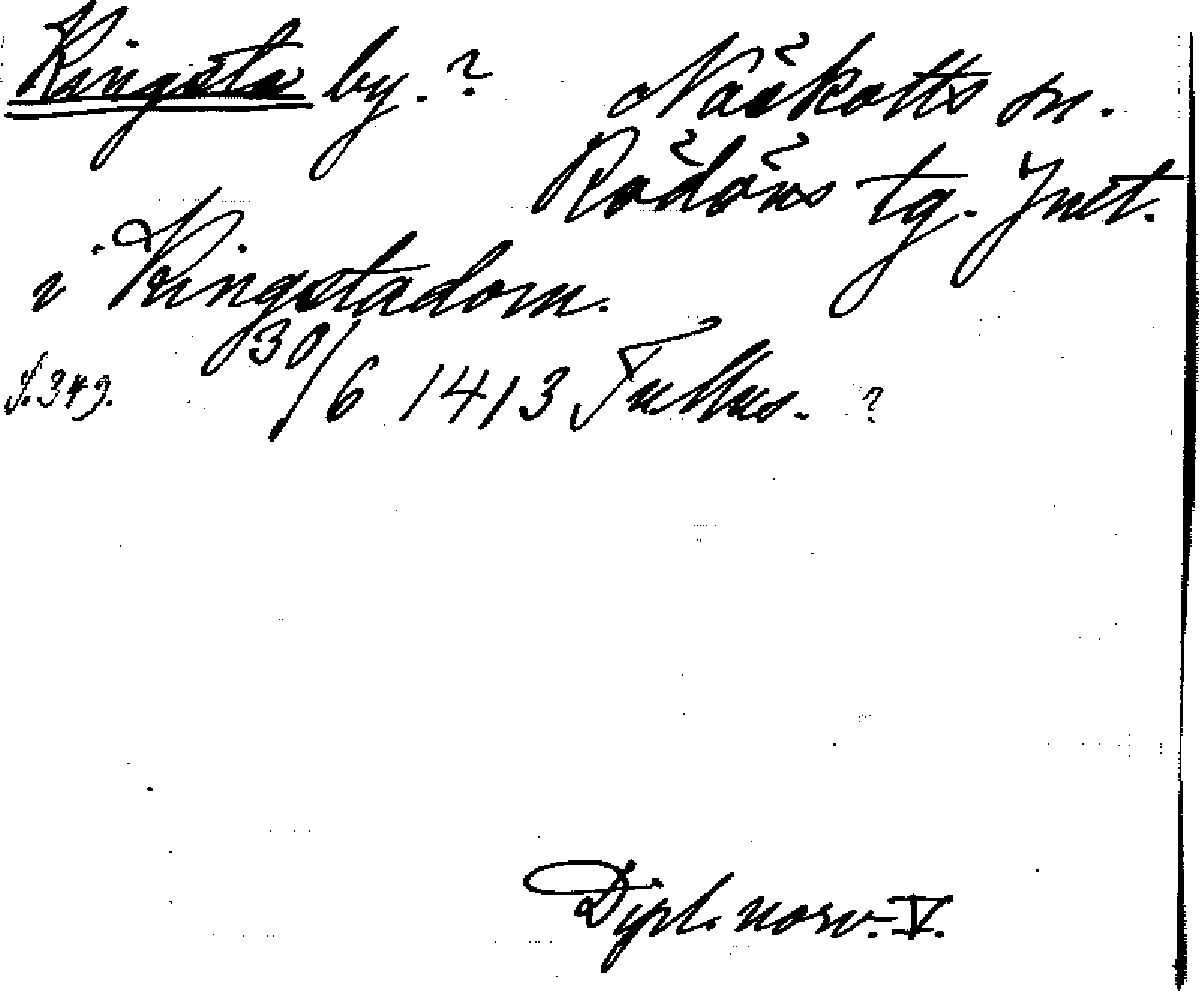 Kingsta by. ? Näskotts sn.
Rödöns tg. Jmtl.
i Kingstadom.
S. 349. 30/6 1413 Tullus. ?
Dipl. norv. V.